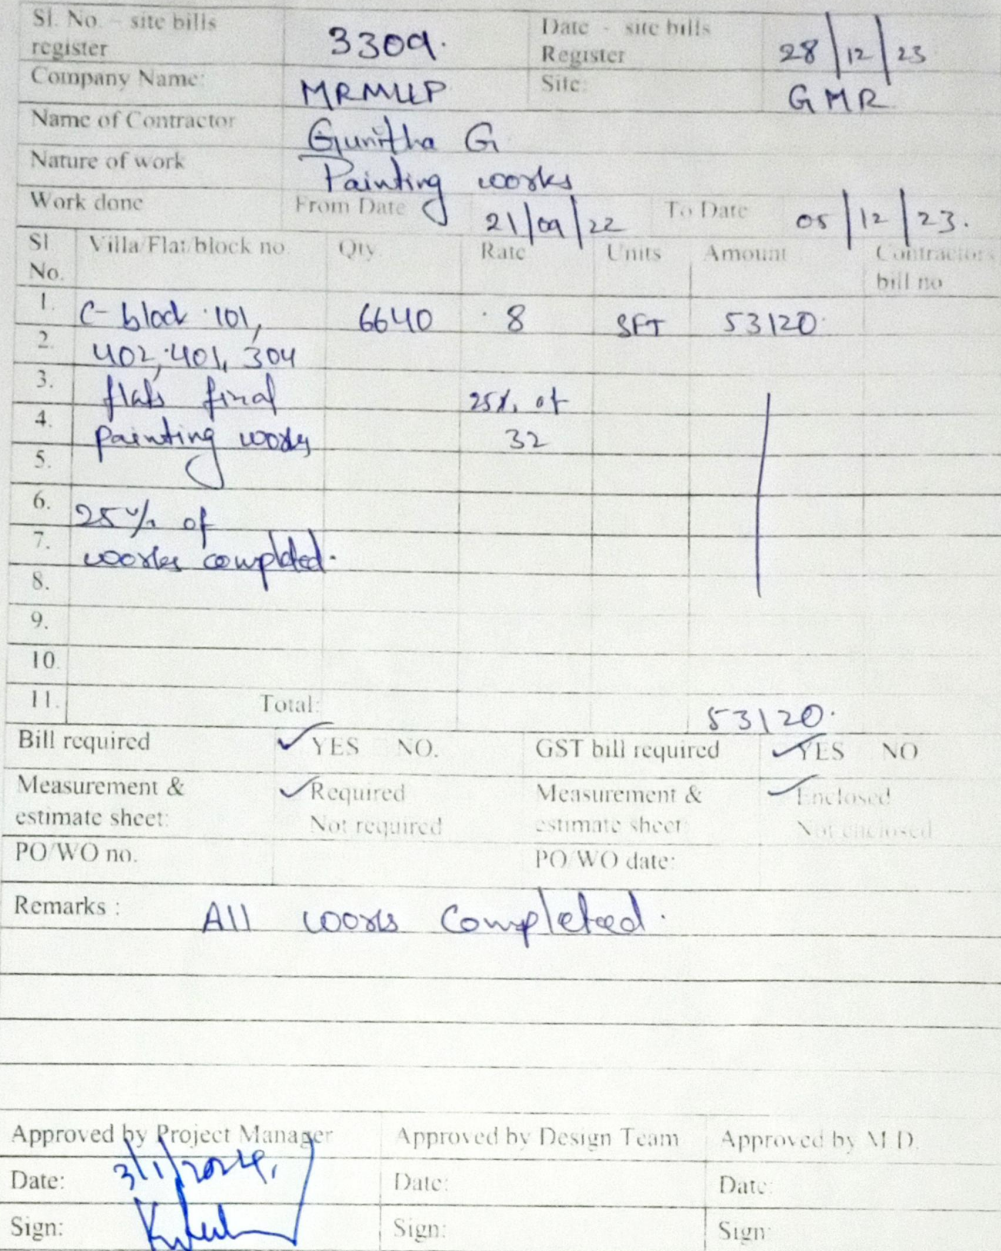 Sl. No. – site bills register 3309. Date - site bills Register 28/12/23
Company Name: MRMLLP Site: GMR
Name of Contractor Gunitha G
Nature of work Painting works
Work done From Date 21/09/22 To Date 05/12/23.
Sl. No. Villa/Flat/block no. Qty. Rate Units Amount Contractors bill no
1. C- block 101, 6640 8 SFT 53120
2. 402, 401, 304
3. flats final 25% of
4. painting works 32
5.
6. 25% of
7. works completed.
8.
9.
10.
11. Total: 53120.
Bill required ✓YES NO. GST bill required ✓YES NO
Measurement & estimate sheet: ✓Required Measurement & estimate sheet: ✓Enclosed
Not required Not enclosed
PO/WO no. PO/WO date:
Remarks : All works Completed.
Approved by Project Manager Approved by Design Team Approved by M.D.
Date: 3/1/2024, Date: Date:
Sign: Sign: Sign: